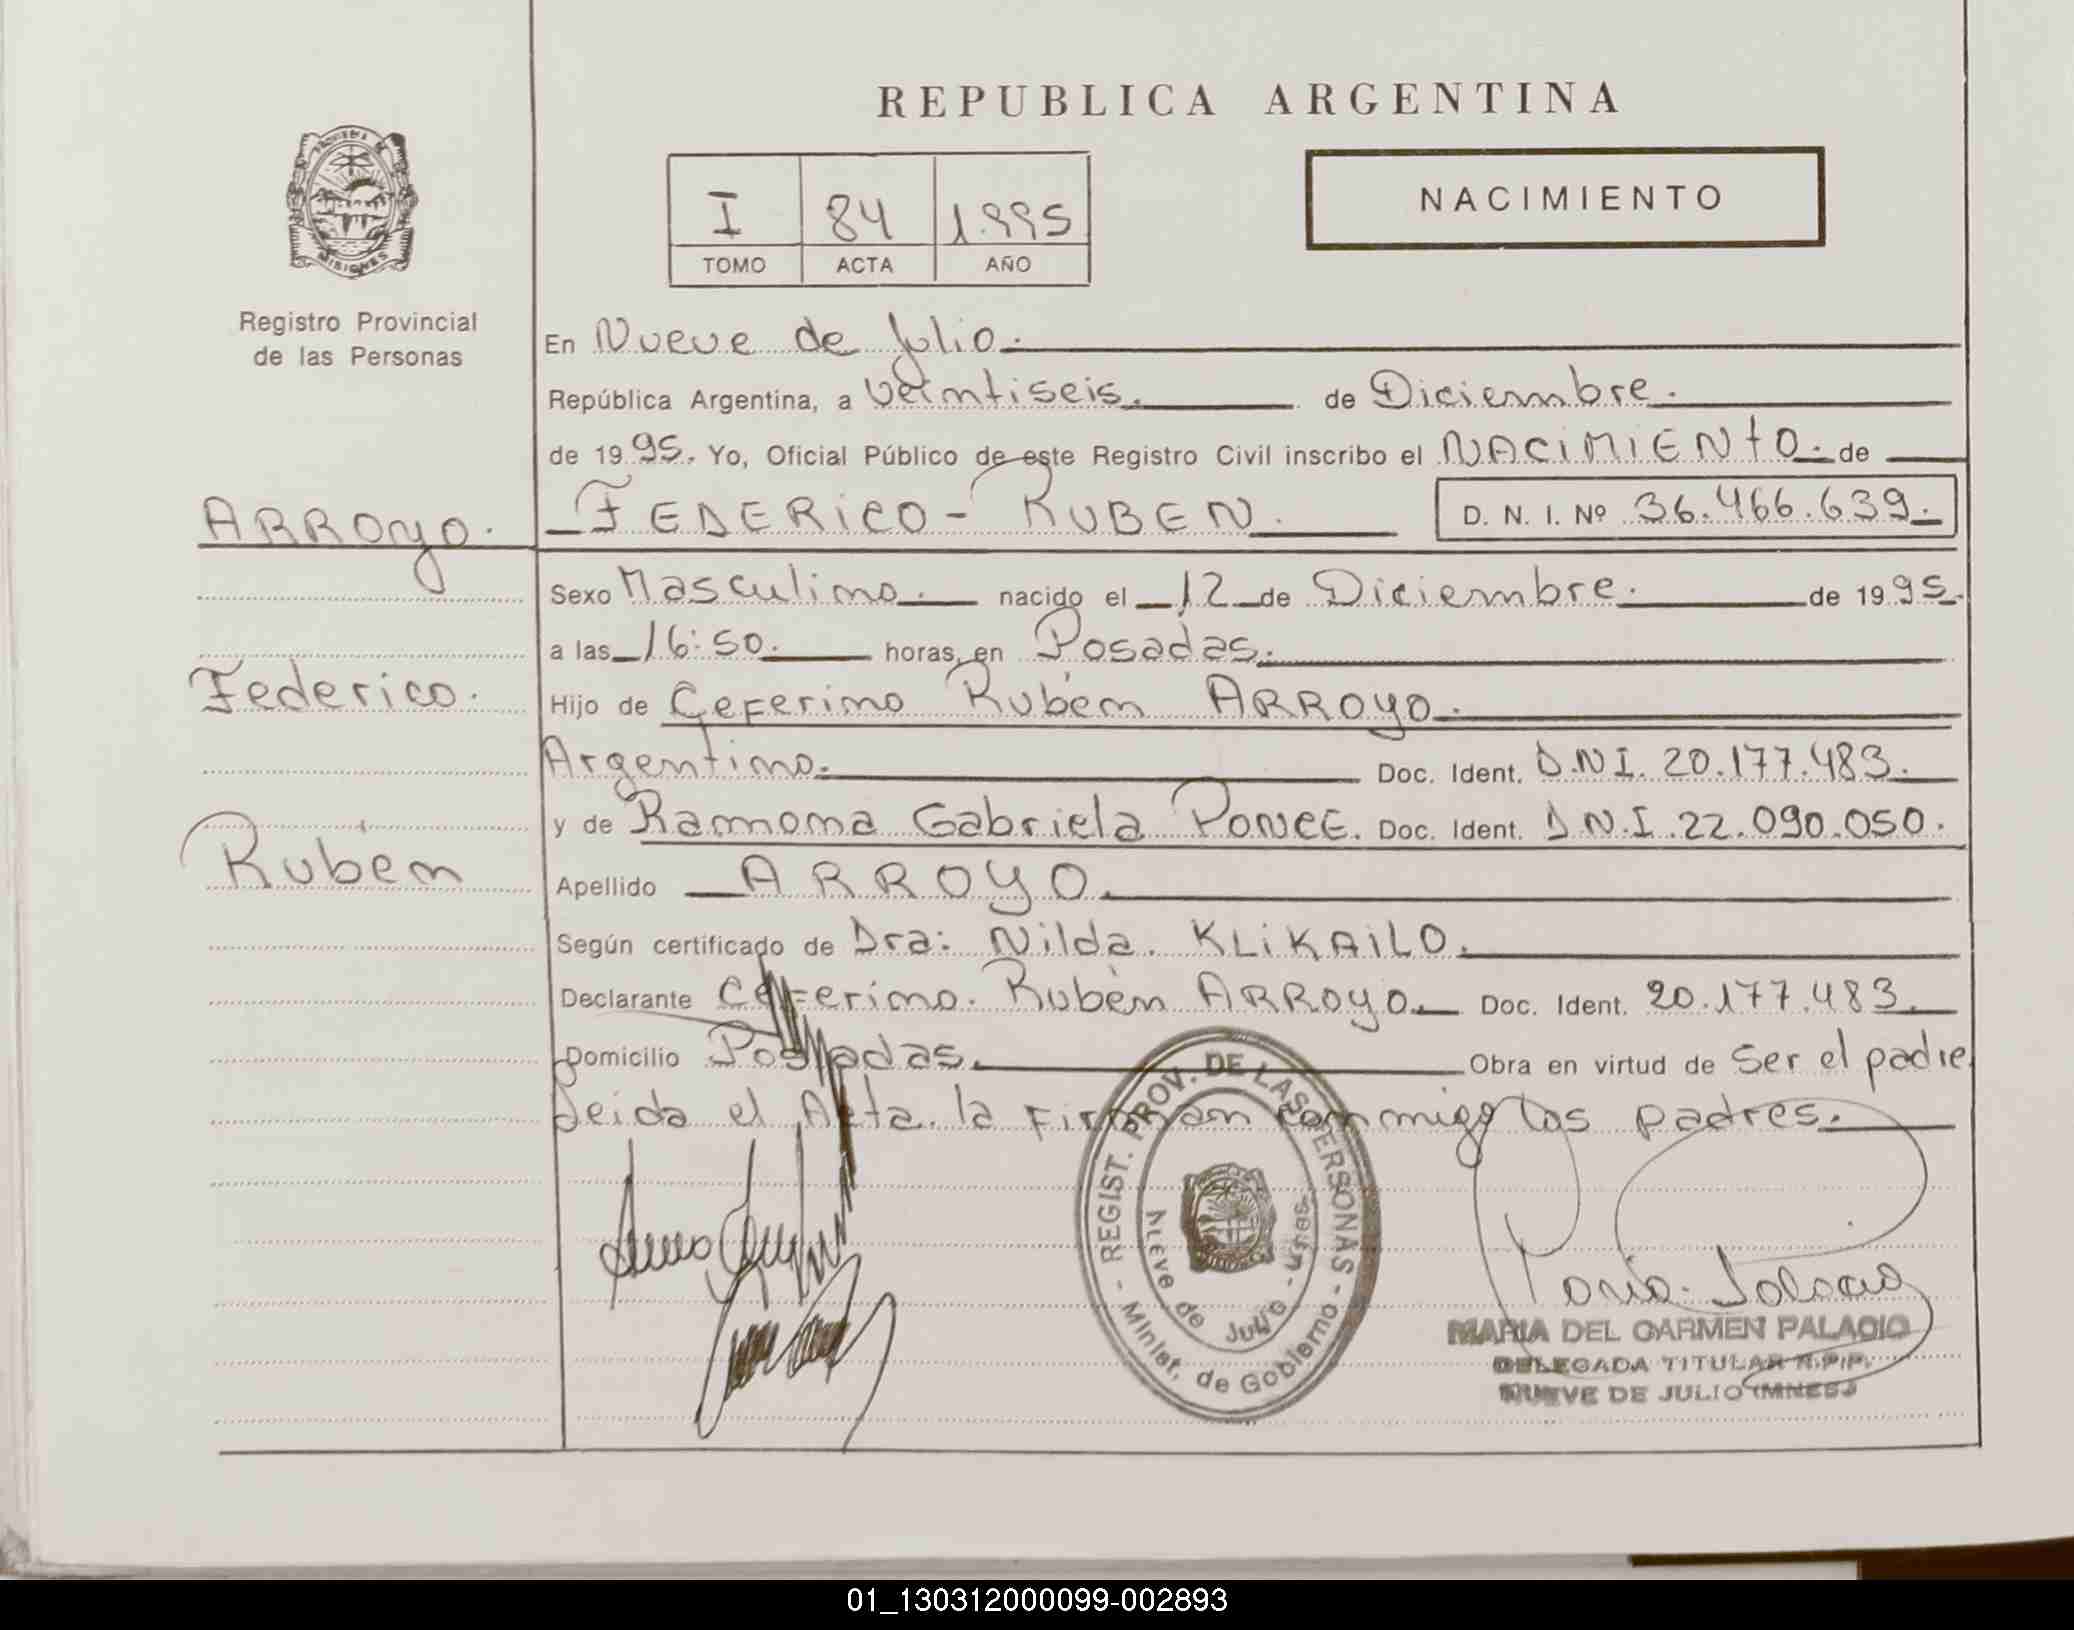 REPUBLICA ARGENTINA
MISIONES
Registro Provincial
de las Personas
I 84 1.995
TOMO ACTA AÑO
NACIMIENTO
En Nueve de Julio.
República Argentina, a veintiseis. de Diciembre.
de 1995. Yo, Oficial Público de este Registro Civil inscribo el NACIMIENTO. de
ARROYO.
FEDERICO - RUBEN. D. N. I. Nº 36.466.639.
Sexo Masculino. nacido el 12 de Diciembre. de 1995.
a las 16:50. horas, en Posadas.
Federico.
Hijo de Ceferino Rubén ARROYO.
Argentino. Doc. Ident. D.N.I. 20.177.483.
y de Ramona Gabriela PONCE. Doc. Ident. D.N.I. 22.090.050.
Rubén
Apellido ARROYO.
Según certificado de Dra: Nilda. KLIKAILO.
Declarante Ceferino. Rubén ARROYO. Doc. Ident. 20.177.483.
Domicilio Posadas. Obra en virtud de Ser el padre
Leida el Acta. la Firman conmigo los padres.
REGIST. PROV. DE LAS PERSONAS - Minist. de Gobierno -
Nueve de Julio - Mnes.
MARIA DEL CARMEN PALACIO
DELEGADA TITULAR R.P.P.
NUEVE DE JULIO (MNES.)
01_130312000099-002893